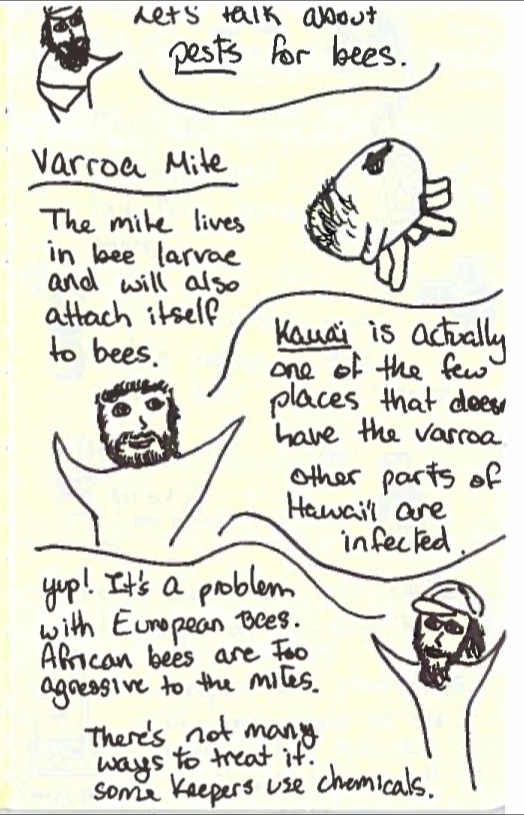 Let's talk about
pests for bees.
Varroa Mite
The mite lives
in bee larvae
and will also
attach itself
to bees.
Kauai is actually
one of the few
places that does
have the varroa
other parts of
Hawai'i are
infected.
yup! It's a problem
with European Bees.
African bees are too
agressive to the mites.
There's not many
ways to treat it.
some keepers use chemicals.